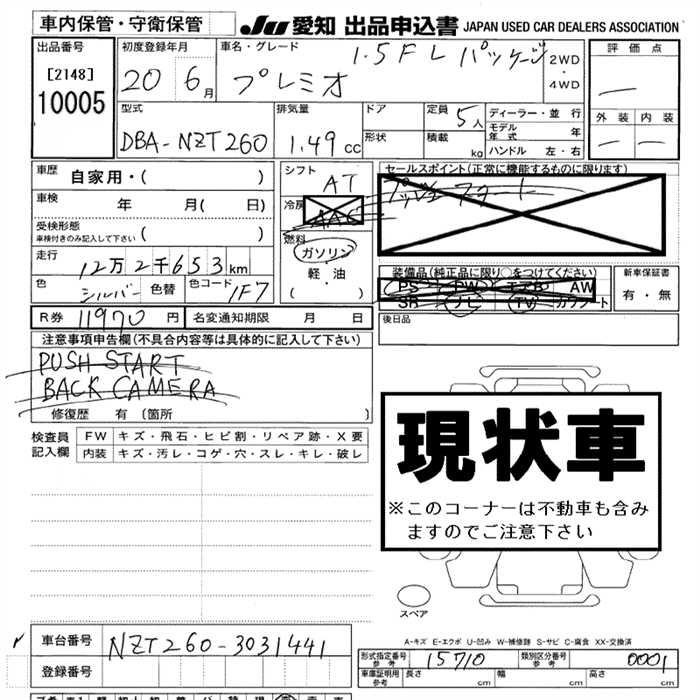 車内保管・守衛保管
JU 愛知 出品申込書 JAPAN USED CAR DEALERS ASSOCIATION
出品番号
[2148]
10005
初度登録年月
20 6月
車名・グレード
1.5F L パッケージ
プレミオ
2WD
・
4WD
評価点
—
外装 内装
— —
型式
DBA-NZT260
排気量
1.49cc
ドア
形状
定員
5人
積載
kg
ディーラー・並行
モデル年式 年
ハンドル 左・右
車歴
自家用・( )
車検
年 月( 日)
受検形態
車検付きのみ記入して下さい ( )
走行
12万2千653km
色
シルバー
色替
色コード
1F7
シフト
AT
冷房
AAC
燃料
ガソリン
・
軽・油
( ・ )
セールスポイント(正常に機能するものに限ります)
プッシュスタート
装備品(純正品に限り○をつけてください)
PS PW エアB AW
SR ナビ TV カワシート
新車保証書
有・無
R券 11970 円
名変通知期限 月 日
後日品
注意事項申告欄(不具合内容等は具体的に記入して下さい)
PUSH START
BACK CAMERA
修復歴 有〔箇所 〕
検査員
記入欄
FW キズ・飛石・ヒビ割・リペア跡・X要
内装 キズ・汚レ・コゲ・穴・スレ・キレ・破レ
現状車
※このコーナーは不動車も含み
ますのでご注意下さい
スペア
A-キズ E-エクボ U-凹み W-補修跡 S-サビ C-腐食 XX-交換済
車台番号
NZT260-3031441
登録番号
形式指定番号
参考
15710
類別区分番号
参考
0001
車庫証明用
参考
長さ cm
幅 cm
高さ cm